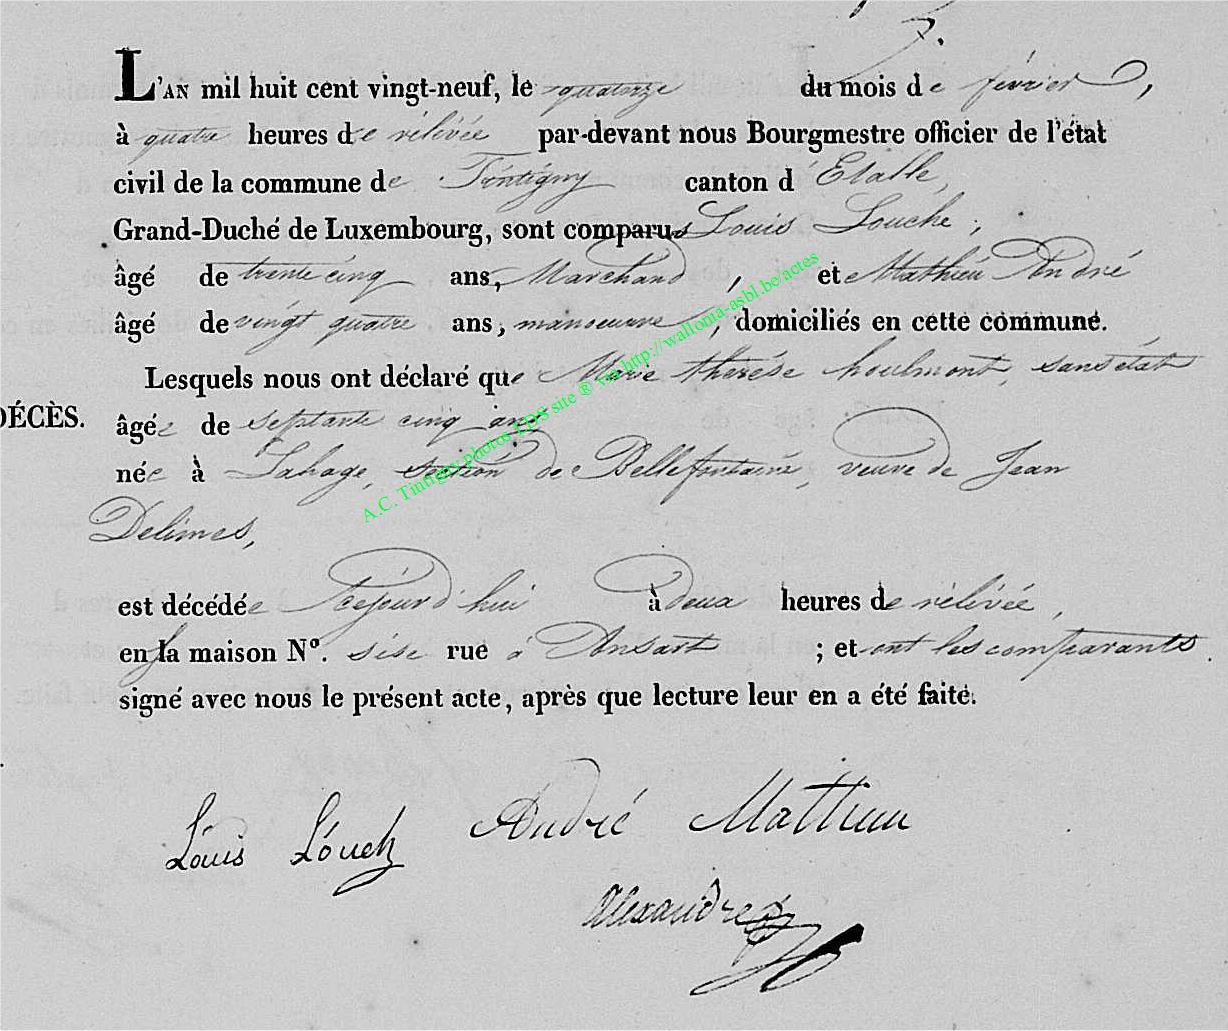 7.
L'AN mil huit cent vingt-neuf, le quatorze du mois de février,
à quatre heures de rélévée par-devant nous Bourgmestre officier de l'état
civil de la commune de Tintigny canton d Etalle,
Grand-Duché de Luxembourg, sont comparus Louis Louche,
âgé de trente cinq ans, Marchand, et Mathieu André
âgé de vingt quatre ans, manoeuvre, domiciliés en cette commune.
Lesquels nous ont déclaré que Marie therése houlmont, sans état
DÉCÈS. âgée de septante cinq ans
née à Lahage, section de Bellefontaine, veuve de Jean
Delimes,
est décédée cejourd'hui à deux heures de rélévée,
en la maison N°. sise rue à Ansart ; et ont les comparants
signé avec nous le présent acte, après que lecture leur en a été faite.
Louis Louch André Mathieu
Alexandre
A.C. Tintigny photos LDS site ® via http://wallonia-asbl.be/actes